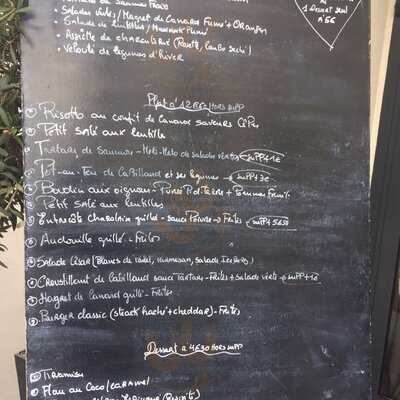 de Saumon Frais
Salades vertes / Magret de Canard Fumé + Oranges
Salade de lentilles /
Assiette de charcuterie (Rosette, Jambon Sec)
Velouté de légumes d'hiver
1 Dessert
6€
Plat à 12€ HORS SUPP
Risotto au confit de canard saveurs Cèpes
Petit salé aux lentilles
Tartare de saumon - Méli-Mélo de salades vertes → SUPP 1€
Pot-au-feu de Cabillaud et ses légumes → SUPP 3€
Boudin aux oignons - Purée P. de Terre + Pommes Fruits
Petit Salé aux lentilles
Entrecôte charolaise grillée - sauce Poivre → Frites SUPP 5€50
Andouille grillé - Frites
Salade César (Blancs de volaille, Parmesan, Salade Iceberg)
Croustillant de Cabillaud sauce Tartare - Frites + Salade verte → SUPP 1€
Magret de Canard grillé - Frites
Burger classic (steack haché + cheddar) - Frites
Dessert à 4€30 HORS SUPP
Tiramisu
Flan au Coco / CARAMEL